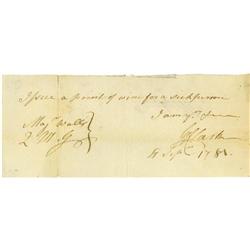 Issue a pint of wine for a sick person
I am yr
Majr Walls
Q M G
G R Clark
4 Sept 1781